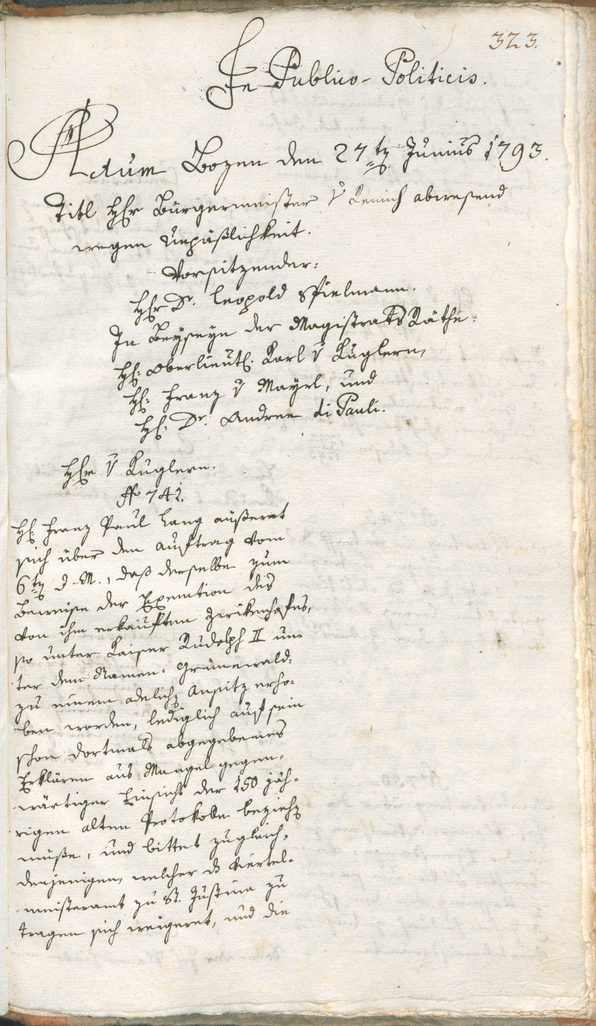 323.
In Publico-Politicis.
Actum Bozen den 27ten Junius 1793.
Titl Hr Bürgermeister v abwesend
wegen Unpäßlichkeit.
Vorsitzender:
Hr Dr. Leopold Spielmann.
In Beyseyn der Magistrats Räthe:
H: Oberlieut: Karl v Kuglern,
H: Franz v Mayrl, und
H: Dr. Andree di Pauli.
Hr v Kuglern.
N 741.
H: Franz Paul Lang außeret
sich über den auftrag vom
6ten d. M., daß derselbe zum
Beweise der Exemtion des
von ihm erkauften
so unter Kaiser Rudolph II un-
ter dem Namen Grünewald
zu einem adelichen Ansitz erho-
ben worden, lediglich auf sein
schon dortmals abgegebenes
Erklären aus Mangel gegen-
wärtiger Einsicht der 150 jäh-
rigen alten Protokolle beziehen
müße, und bittet zugleich,
denjenigen, welcher das Viertel-
meisteramt zu St. Justina zu
tragen sich weigeret, und die